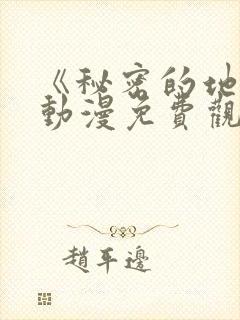 《秘密的地
動漫免費觀
趙平邊